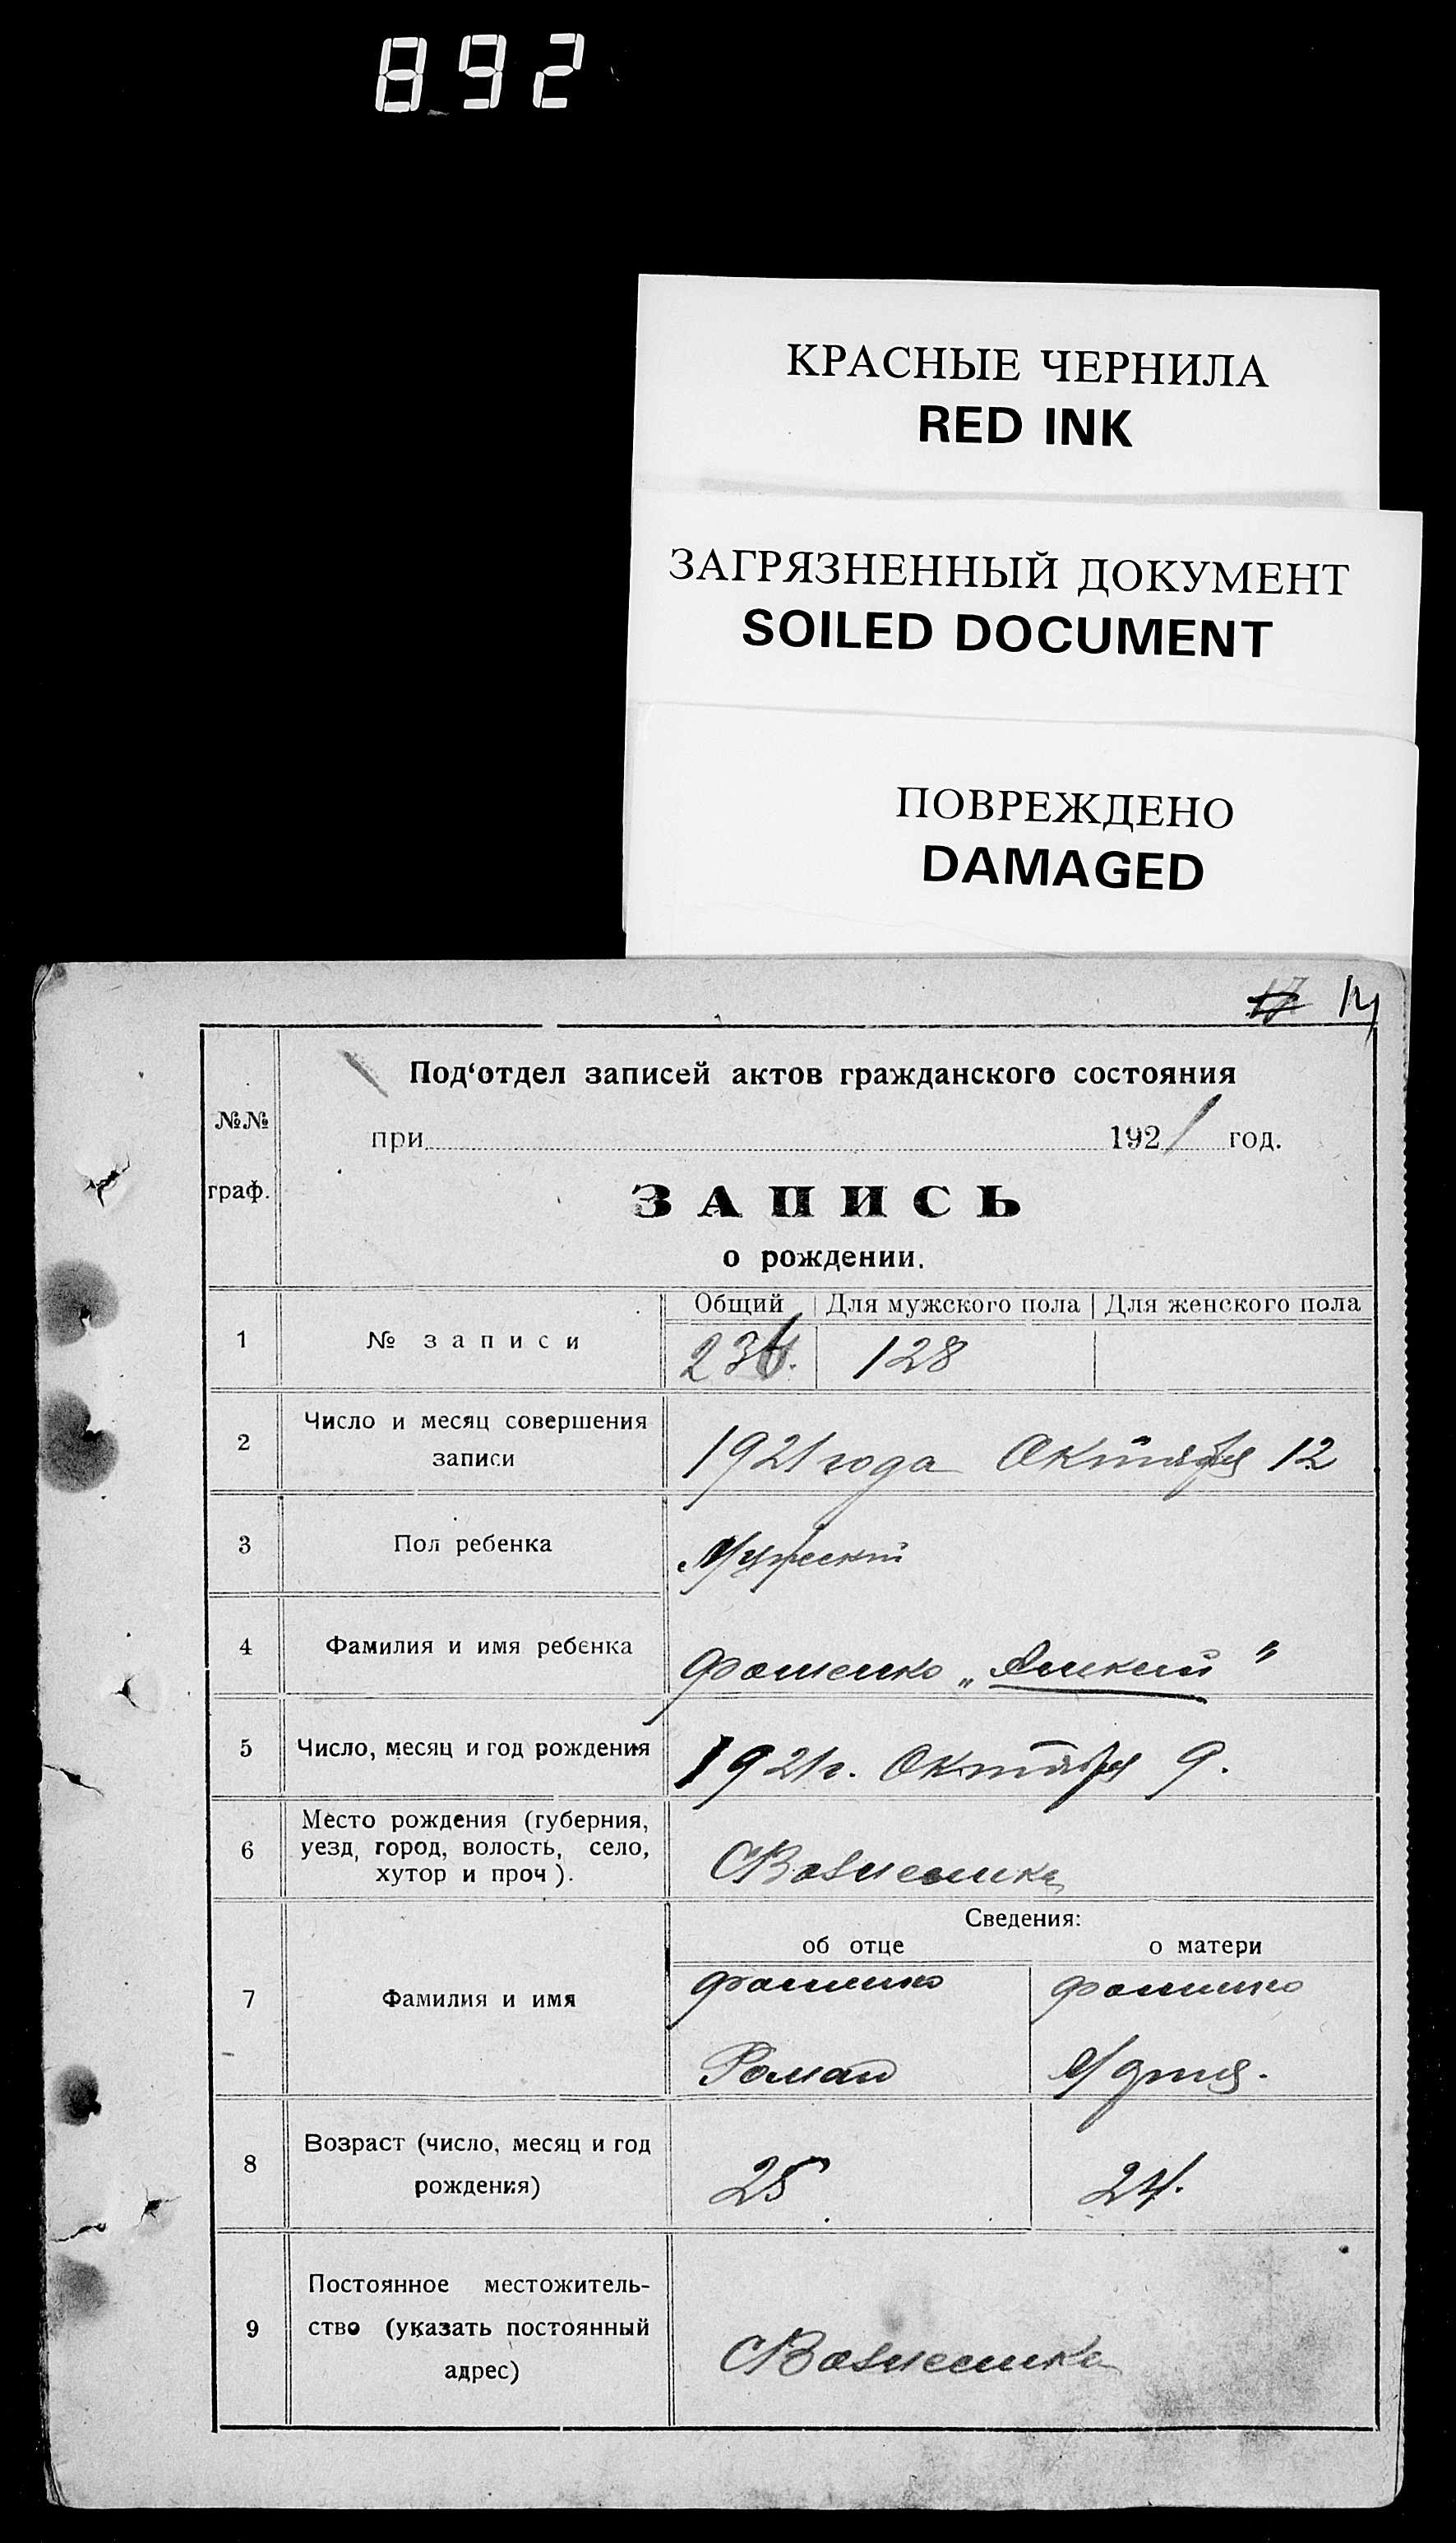 892
КРАСНЫЕ ЧЕРНИЛА
RED INK
ЗАГРЯЗНЕННЫЙ ДОКУМЕНТ
SOILED DOCUMENT
ПОВРЕЖДЕНО
DAMAGED
17 14
Под‘отдел записей актов гражданского состояния
№№
при 1921 год.
граф.
ЗАПИСЬ
о рождении.
Общий Для мужского пола Для женского пола
1 № записи 128
2 Число и месяц совершения
записи
1921 года Октября 12
3 Пол ребенка Мужский
4 Фамилия и имя ребенка Фоменко
5 Число, месяц и год рождения 1921г. Октября 9.
6 Место рождения (губерния,
уезд, город, волость, село,
хутор и проч).
С Вознесенка
Сведения:
об отце о матери
7 Фамилия и имя Фоменко Фоменко
Роман
8 Возраст (число, месяц и год
рождения)
25 24.
9 Постоянное местожитель-
ство (указать постоянный
адрес)
С Вознесенка